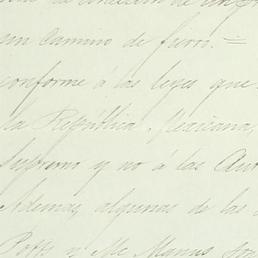 la concesion de un
un camino de fierro. =
conforme á las leyes que
la República Mexicana,
Supremo y no á las Au
Ademas, algunas de las
Poffs y Mc Manus son